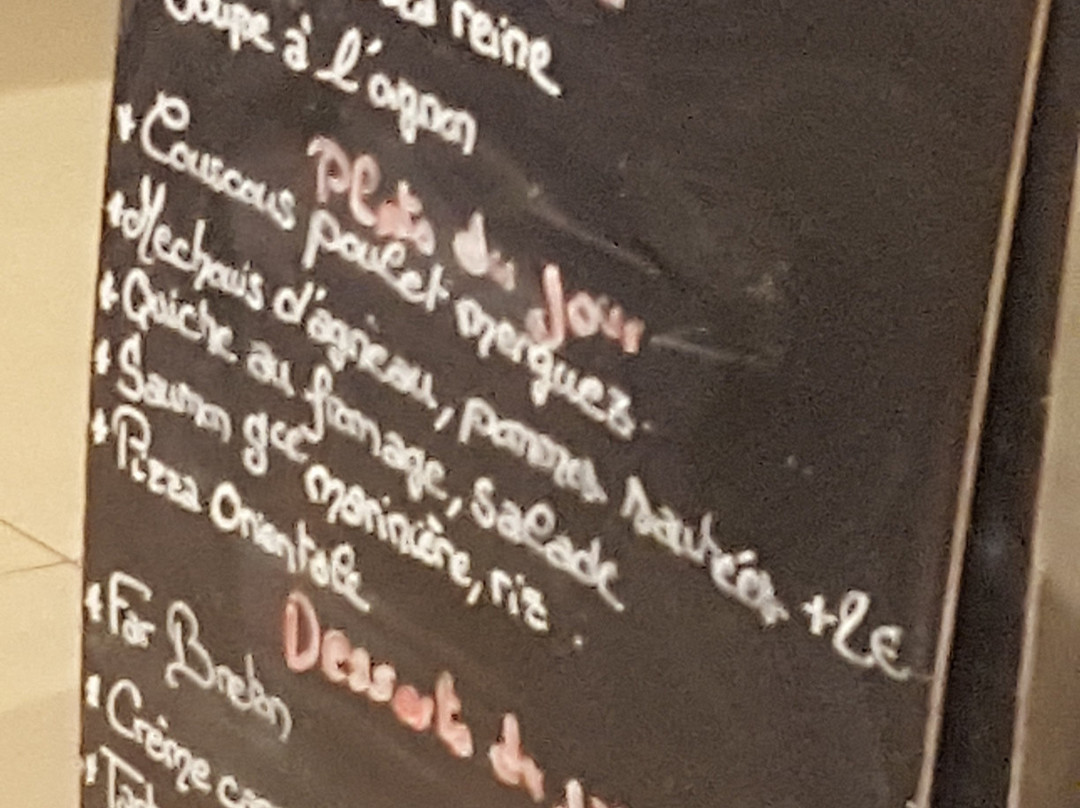 reine
Soupe à l'ognon
Plats du Jour
* Couscous poulet merguez.
* Mechouis d'agneau, pommes sautées +2€
* Quiche au fromage, Salade
* Saumon gcc marinière, riz.
* Pizza Orientale
Dessert du
* Far Breton
* Crème